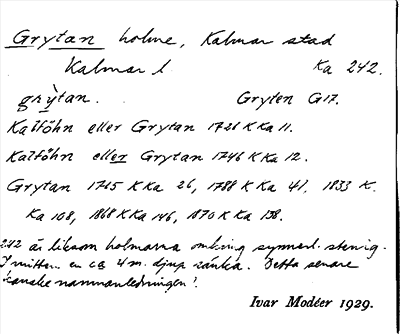 Grytan holme, Kalmar stad
Kalmar l. Ka 242.
grỳtan. Gryten G17.
Kalföhn eller Grytan 1726 K Ka 11.
Kalföhn eller Grytan 1746 K Ka 12.
Grytan 1765 K Ka 26, 1788 K Ka 41, 1833 K.
Ka 108, 1868 K Ka 146, 1870 K Ka 158.
242 är liksom holmarna omkring synnerl. stenig.
I mitten en ca 4 m. djup sänka. Detta senare
kanske namnanledningen?
Ivar Modéer 1929.